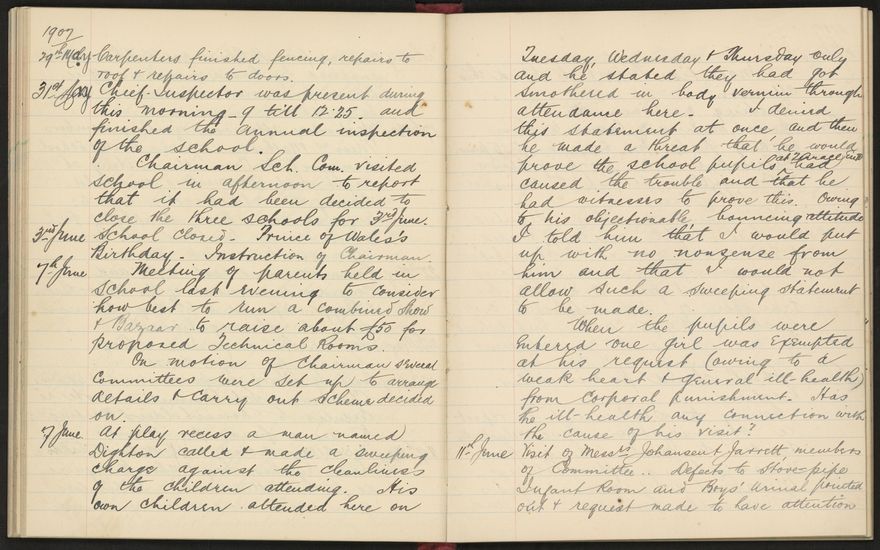 1907
29th May Carpenters finished fencing, repairs to
roof & repairs to doors.
31st May Chief Inspector was present during
this morning - 9 till 12.25 and
finished the annual inspection
of the school.
Chairman Sch. Com. visited
school in afternoon to report
that it had been decided to
close the three schools for 3rd June.
3rd June School closed - Prince of Wales's
Birthday. Instruction of Chairman.
7th June Meeting of parents held in
school last evening to consider
how best to run a combined Show
& Bazaar to raise about £50 for
proposed Technical Rooms.
On motion of Chairman several
Committees were set up to arrange
details & carry out scheme decided
on.
7 June. At play recess a man named
Dighton called & made a sweeping
charge against the cleanliness
of the children attending. His
own children attended here on
Tuesday, Wednesday & Thursday only
and he stated they had got
smothered in body vermin through
attendance here. I denied
this statement at once and then
he made a threat that he would
prove the school pupils had
caused the trouble and that he
had witnesses to prove this. Owing
to his objectionable bouncing attitude
I told him that I would put
up with no nonsense from
him and that I would not
allow such a sweeping statement
to be made.
When the pupils were
entered one girl was exempted
at his request (owing to a
weak heart & general ill-health)
from corporal punishment. Has
the ill-health any connection with
the cause of his visit?
11th June Visit of Messrs Johansen & Jarrett, members
of Committee. Defects to stove-pipe
Infant Room and Boys' Urinal pointed
out & request made to have attention